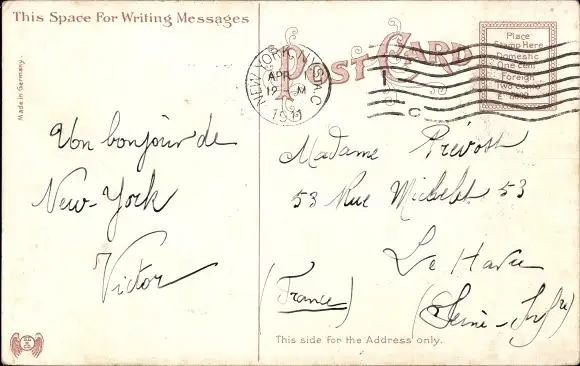 This Space For Writing Messages
Made in Germany.
POST CARD
NEW YORK, N.Y. STA. C
APR 1
12 M
1911
Place
Stamp Here
Domestic
One cent
Foreign
Two cents
C
Un bonjour de
New-York
Victor
Madame Prévost
53 Rue Michelet 53
Le Havre
(France)
(Seine-Infre)
This side for the Address only.